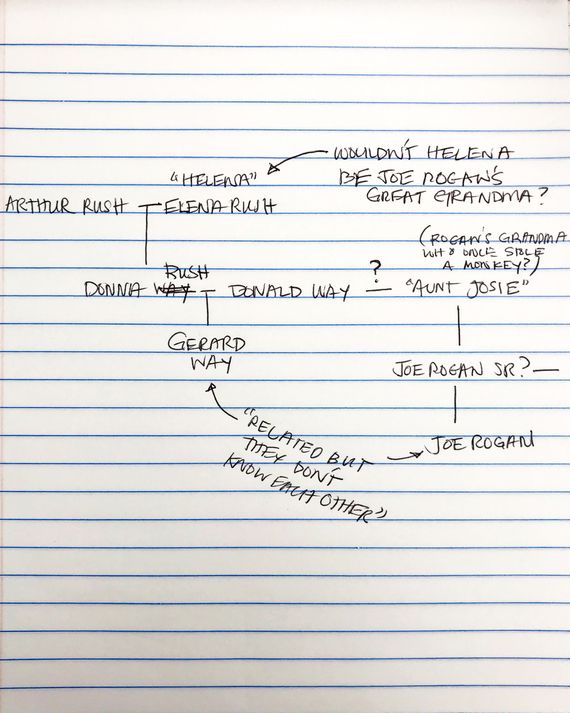 WOULDN'T HELENA
BE JOE ROGAN'S
GREAT GRANDMA?
"HELENA"
ARTHUR RUSH ELENA RUSH
(ROGAN'S GRANDMA
WHO ONCE STOLE
A MONKEY?)
RUSH
?
DONNA WAY DONALD WAY "AUNT JOSIE"
GERARD
WAY
JOE ROGAN SR?
JOE ROGAN
"RELATED BUT
THEY DON'T
KNOW EACH OTHER"